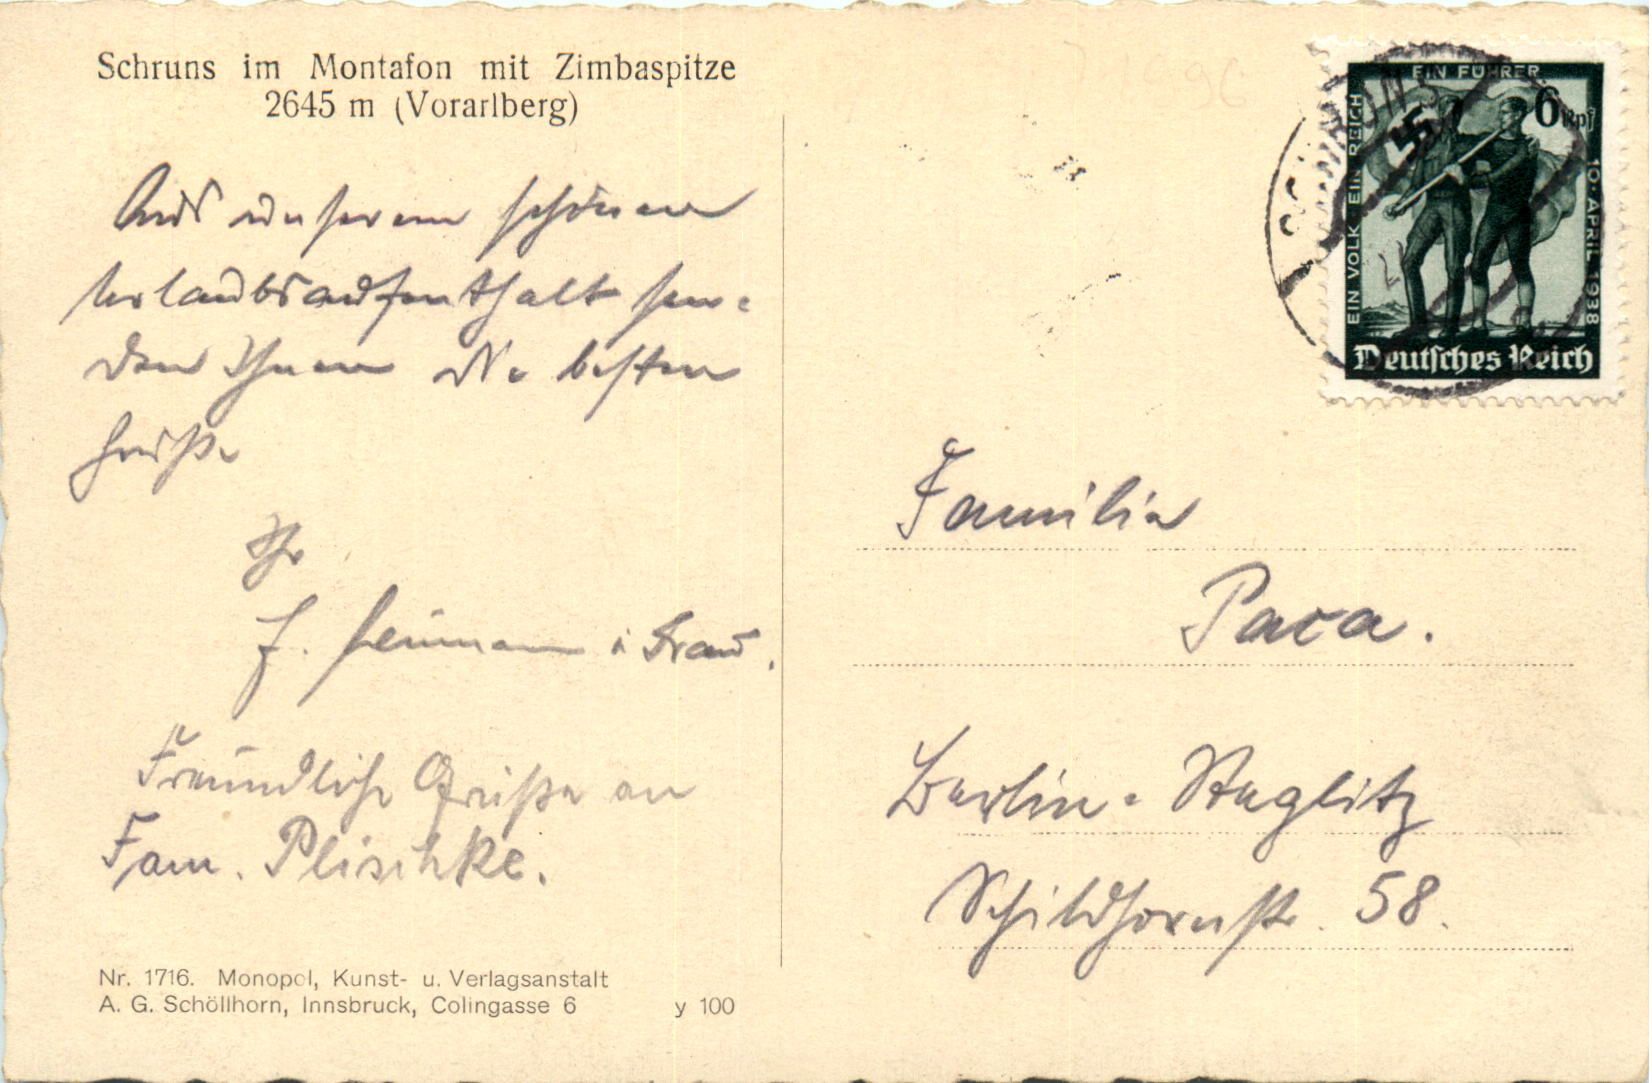 Schruns im Montafon mit Zimbaspitze
2645 m (Vorarlberg)
Aus unserem schönen
Urlaubsaufenthalt sen-
den Ihnen die besten
Grüße
Ihr
u. Frau.
Freundliche Grüße an
Fam. Plischke.
Nr. 1716. Monopol, Kunst- u. Verlagsanstalt
A. G. Schöllhorn, Innsbruck, Colingasse 6 y 100
EIN VOLK EIN REICH EIN FÜHRER
10. APRIL 1938
6 Rpf
Deutsches Reich
Familie
Paca.
Berlin-Steglitz
Schildhornstr. 58.